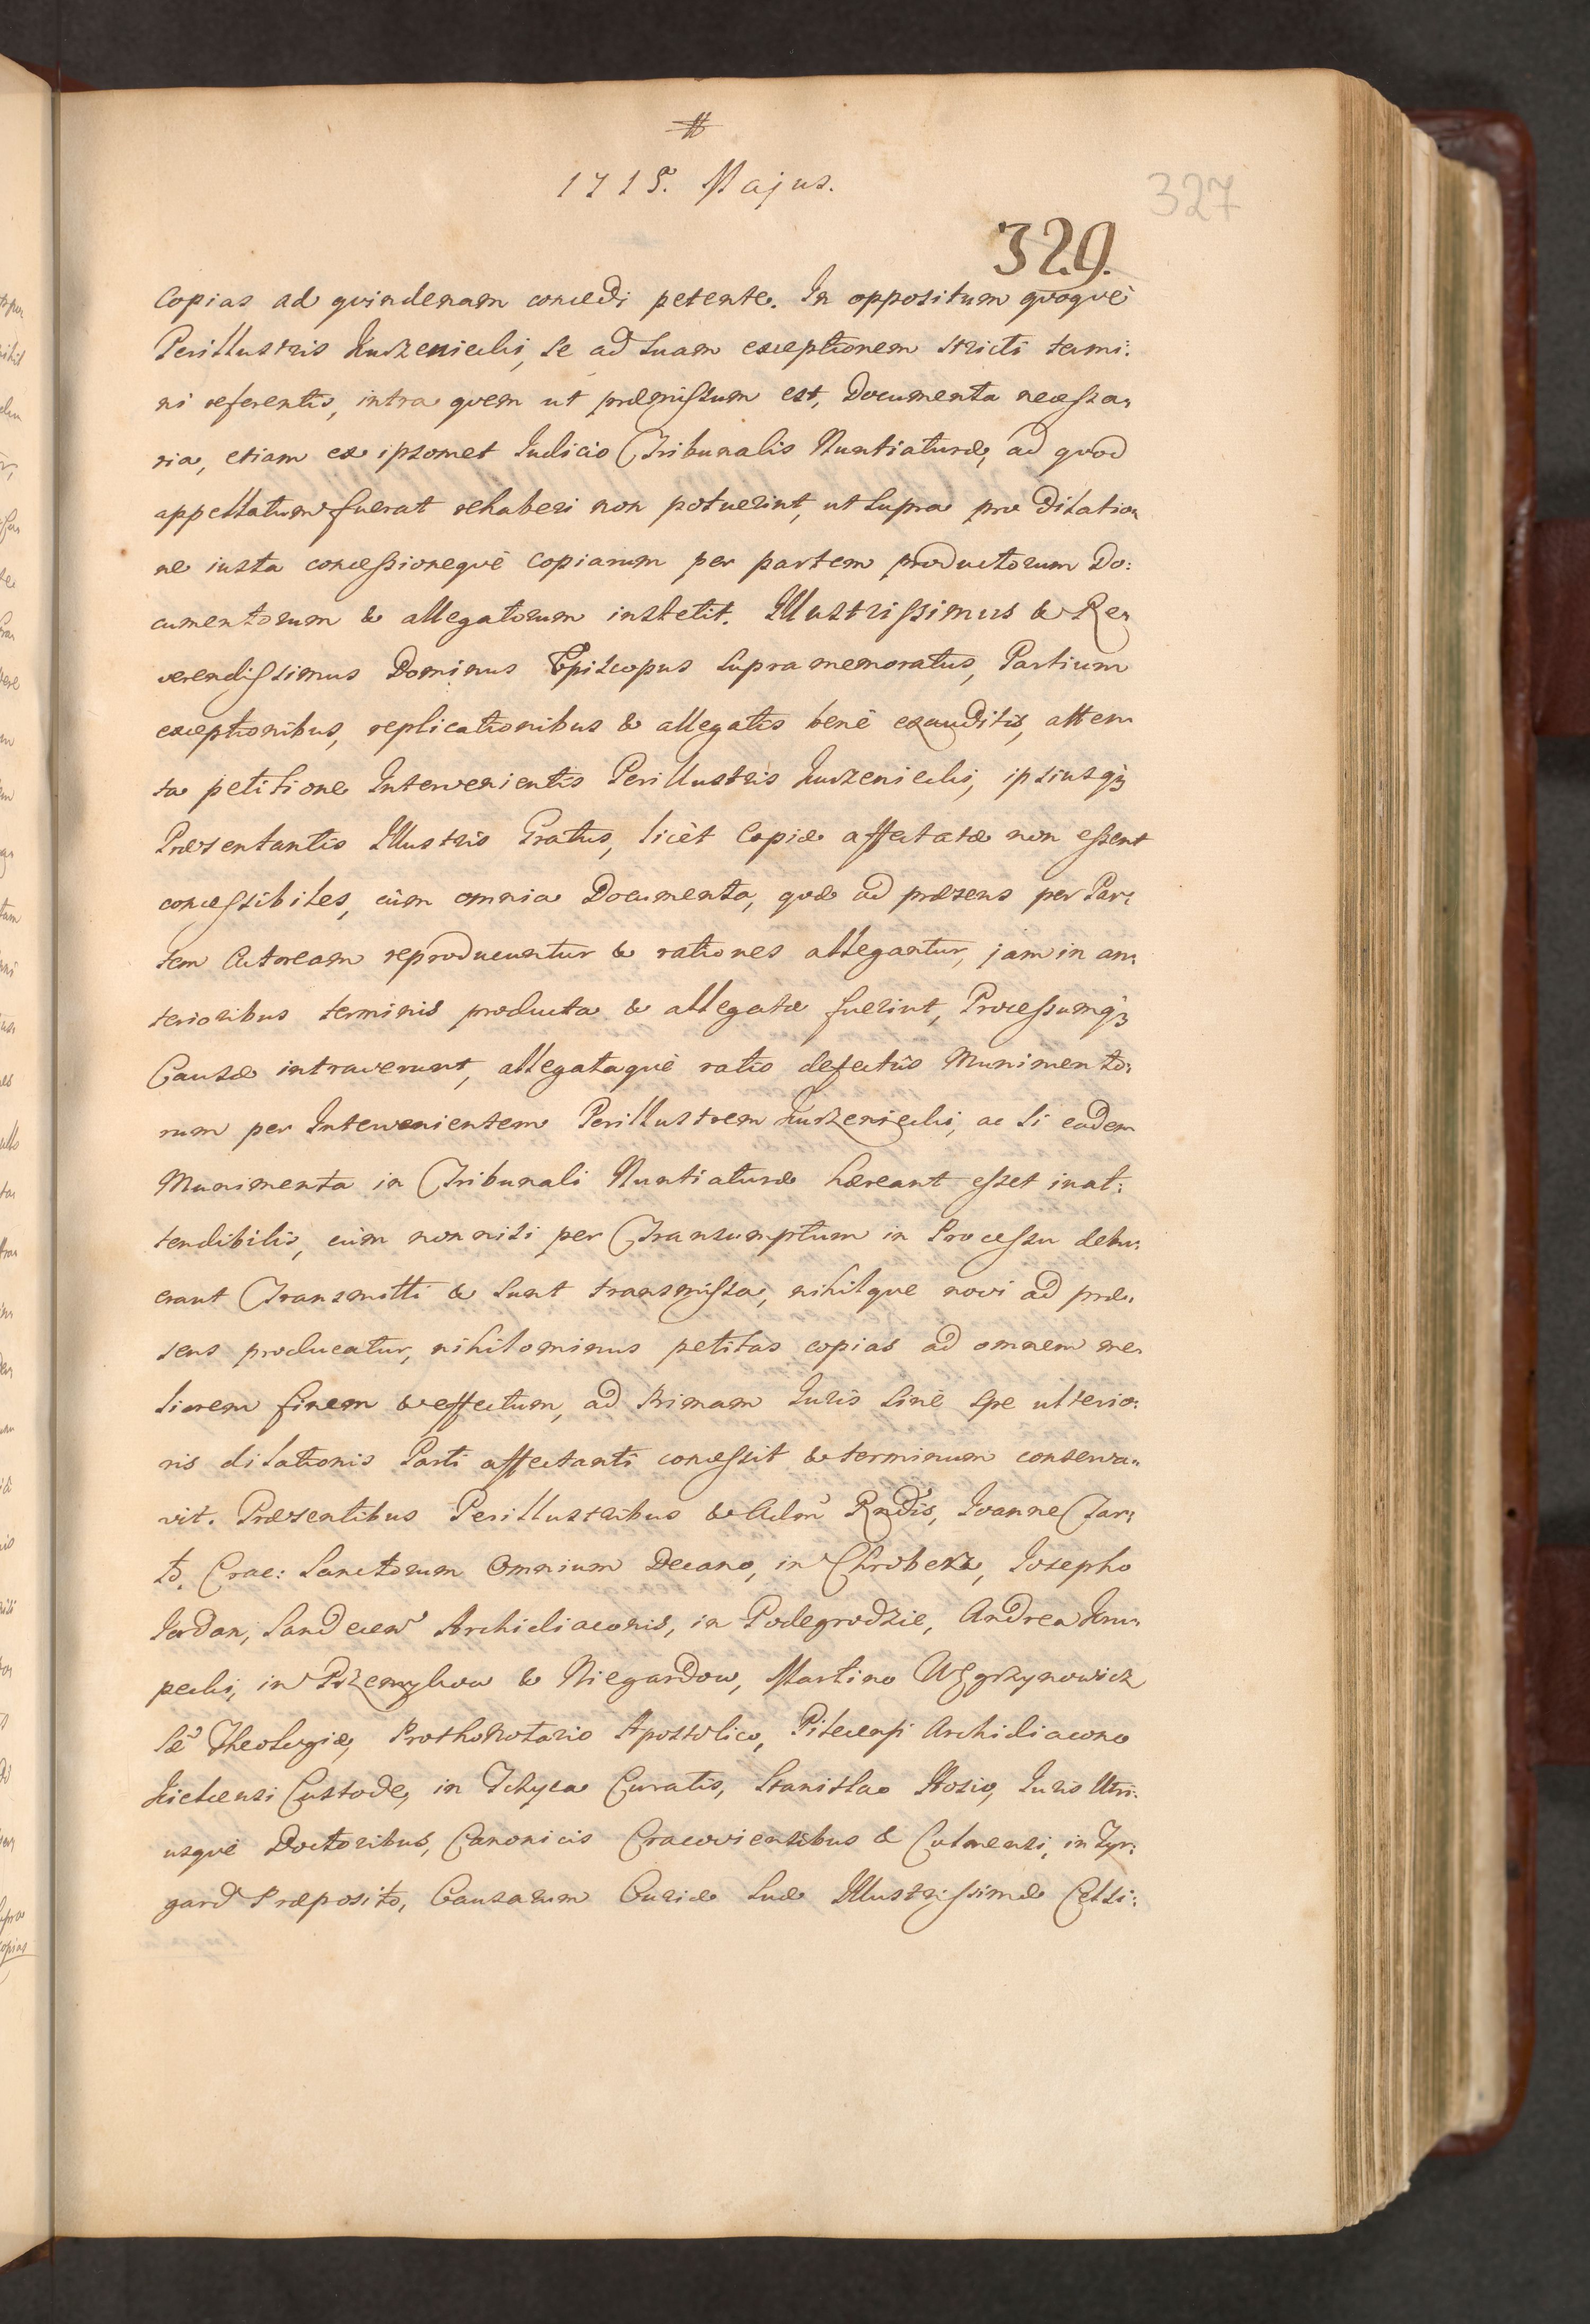 #
1715. Majus.
327
329.
Copias ad quindenam concedi petente. In oppositum quoquè
Perillustris Kurzeniecki, se ad suam exceptionem stricti termi:
ni referentis, intra quem ut præmissum est, Documenta necessa„
ria, etiam ex ipsomet Iudicio Tribunalis Nuntiaturæ, ad quod
appellatum fuerat rehaberi non potuerint, ut supra pro Dilatio„
ne iusta concessionequè Copiarum per partem productorum Do:
cumentorum & allegatorum institit. Illustrissimus & Re„
verendissimus Dominus Episcopus supramemoratus, Partium
exceptionibus, replicationibus & allegatis benè exauditis, atten
ta petitione Intervenientis Perillustris Kurzeniecki, ipsiusq3
Præsentantis Illustris Gratus, licèt Copiæ affectatæ non essent
concessibiles, cùm omnia Documenta, quæ ad præsens per Par:
tem Actoream reproducuntur & rationes allegantur, jam in an„
terioribus terminis producta & allegatæ fuerint, Processumq3
Causæ intraverunt, allegataquè ratio defectûs Munimento:
rum per Intervenientem Perillustrem Kurzeniecki, ac si eadem
Munimenta in Tribunali Nuntiaturæ hæreant esset inat:
tendibilis, cùm non nisi per Transumptum in Processu debu:
erant Transmitti & sunt transmissa, nihilque novi ad præ„
sens producatur, nihilominus petitas copias ad omnem me„
liorem finem & effectum, ad primam Iuris sinè spe ulterio:
ris dilationis Parti affectanti concessit & terminum conserva„
vit. Præsentibus Perillustribus & Adm Rndis, Joanne Tar:
ło, Crac: Sanctorum Omnium Decano, in Chroberz, Josepho
Jordan, Sandecen Archidiaconis, in Podegrodzie, Andrea Kru„
pecki, in Przemykow & Niegardow, Martino Węgrzynowicz
Sæ Theologiæ, Prothonotario Apostolico, Pilecensi Archidiacono
Kielcensi Custode, in Tczyca Curatis, Stanislao Hosio, Juris Utri:
usquè Doctoribus, Canonicis Cracoviensibus & Culmensi, in Tyr:
gard Præposito, Causarum Curiæ Suæ Illustrissimæ Celsi: